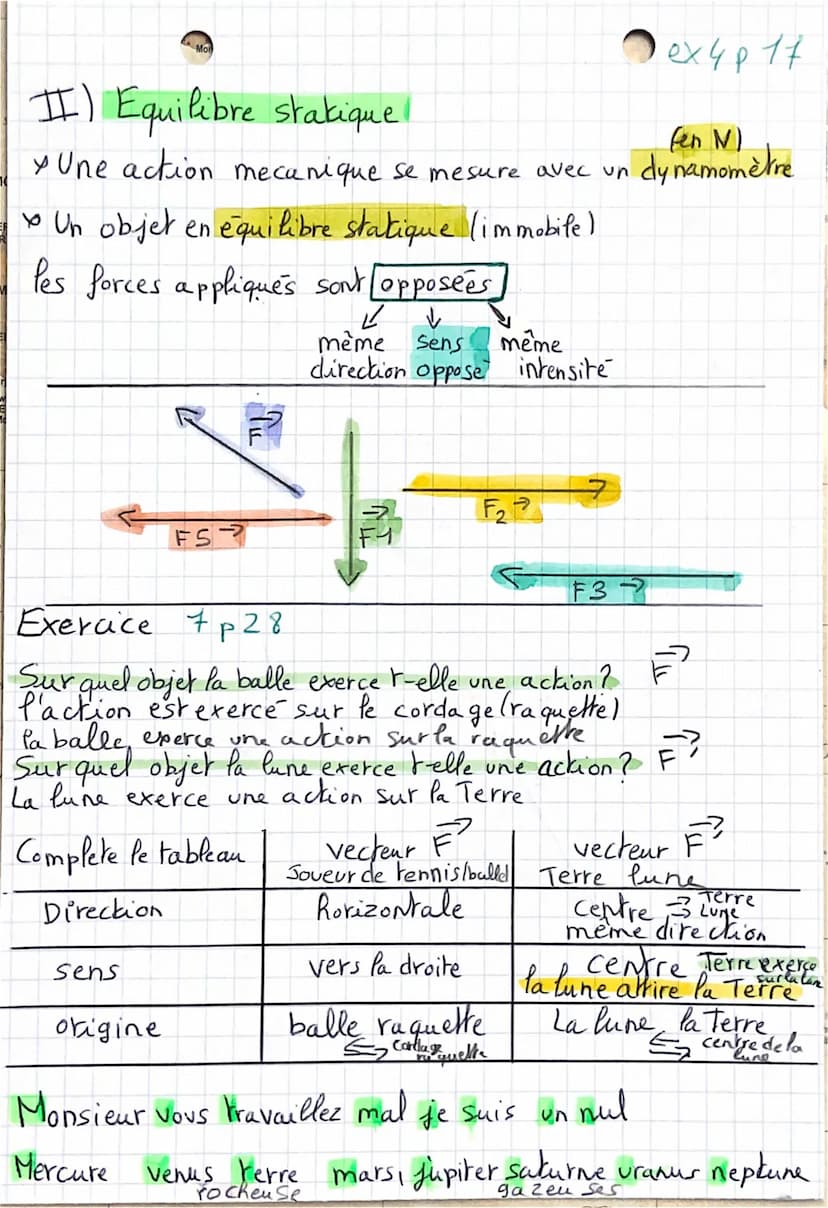 Mor
ex 4 p 17
II) Equilibre statique
(en N)
× Une action mecanique se mesure avec un dynamomètre
× Un objet en équilibre statique (immobile)
les forces appliqués sont opposées
même sens même
direction opposé intensité
F→
F2→
F5→
F1→
F3→
Exercice 7 p 28
Sur quel objet la balle exerce t-elle une action? F→
l'action est exercé sur le cordage (raquette)
la balle exerce une action sur la raquette
Sur quel objet la lune exerce t-elle une action? F→'
La lune exerce une action sur la Terre
Complete le tableau vecteur F→ vecteur F→'
Joueur de tennis/balle Terre lune
Direction horizontale centre → Terre Lune
même direction
sens vers la droite centre Terre exerce
la lune attire la Terre
origine balle raquette La lune, la Terre
⇆ cordage raquette ⇆ centre de la lune
Monsieur vous travaillez mal je suis un nul
Mercure venus terre mars, jupiter saturne uranus neptune
rocheuse gazeuses